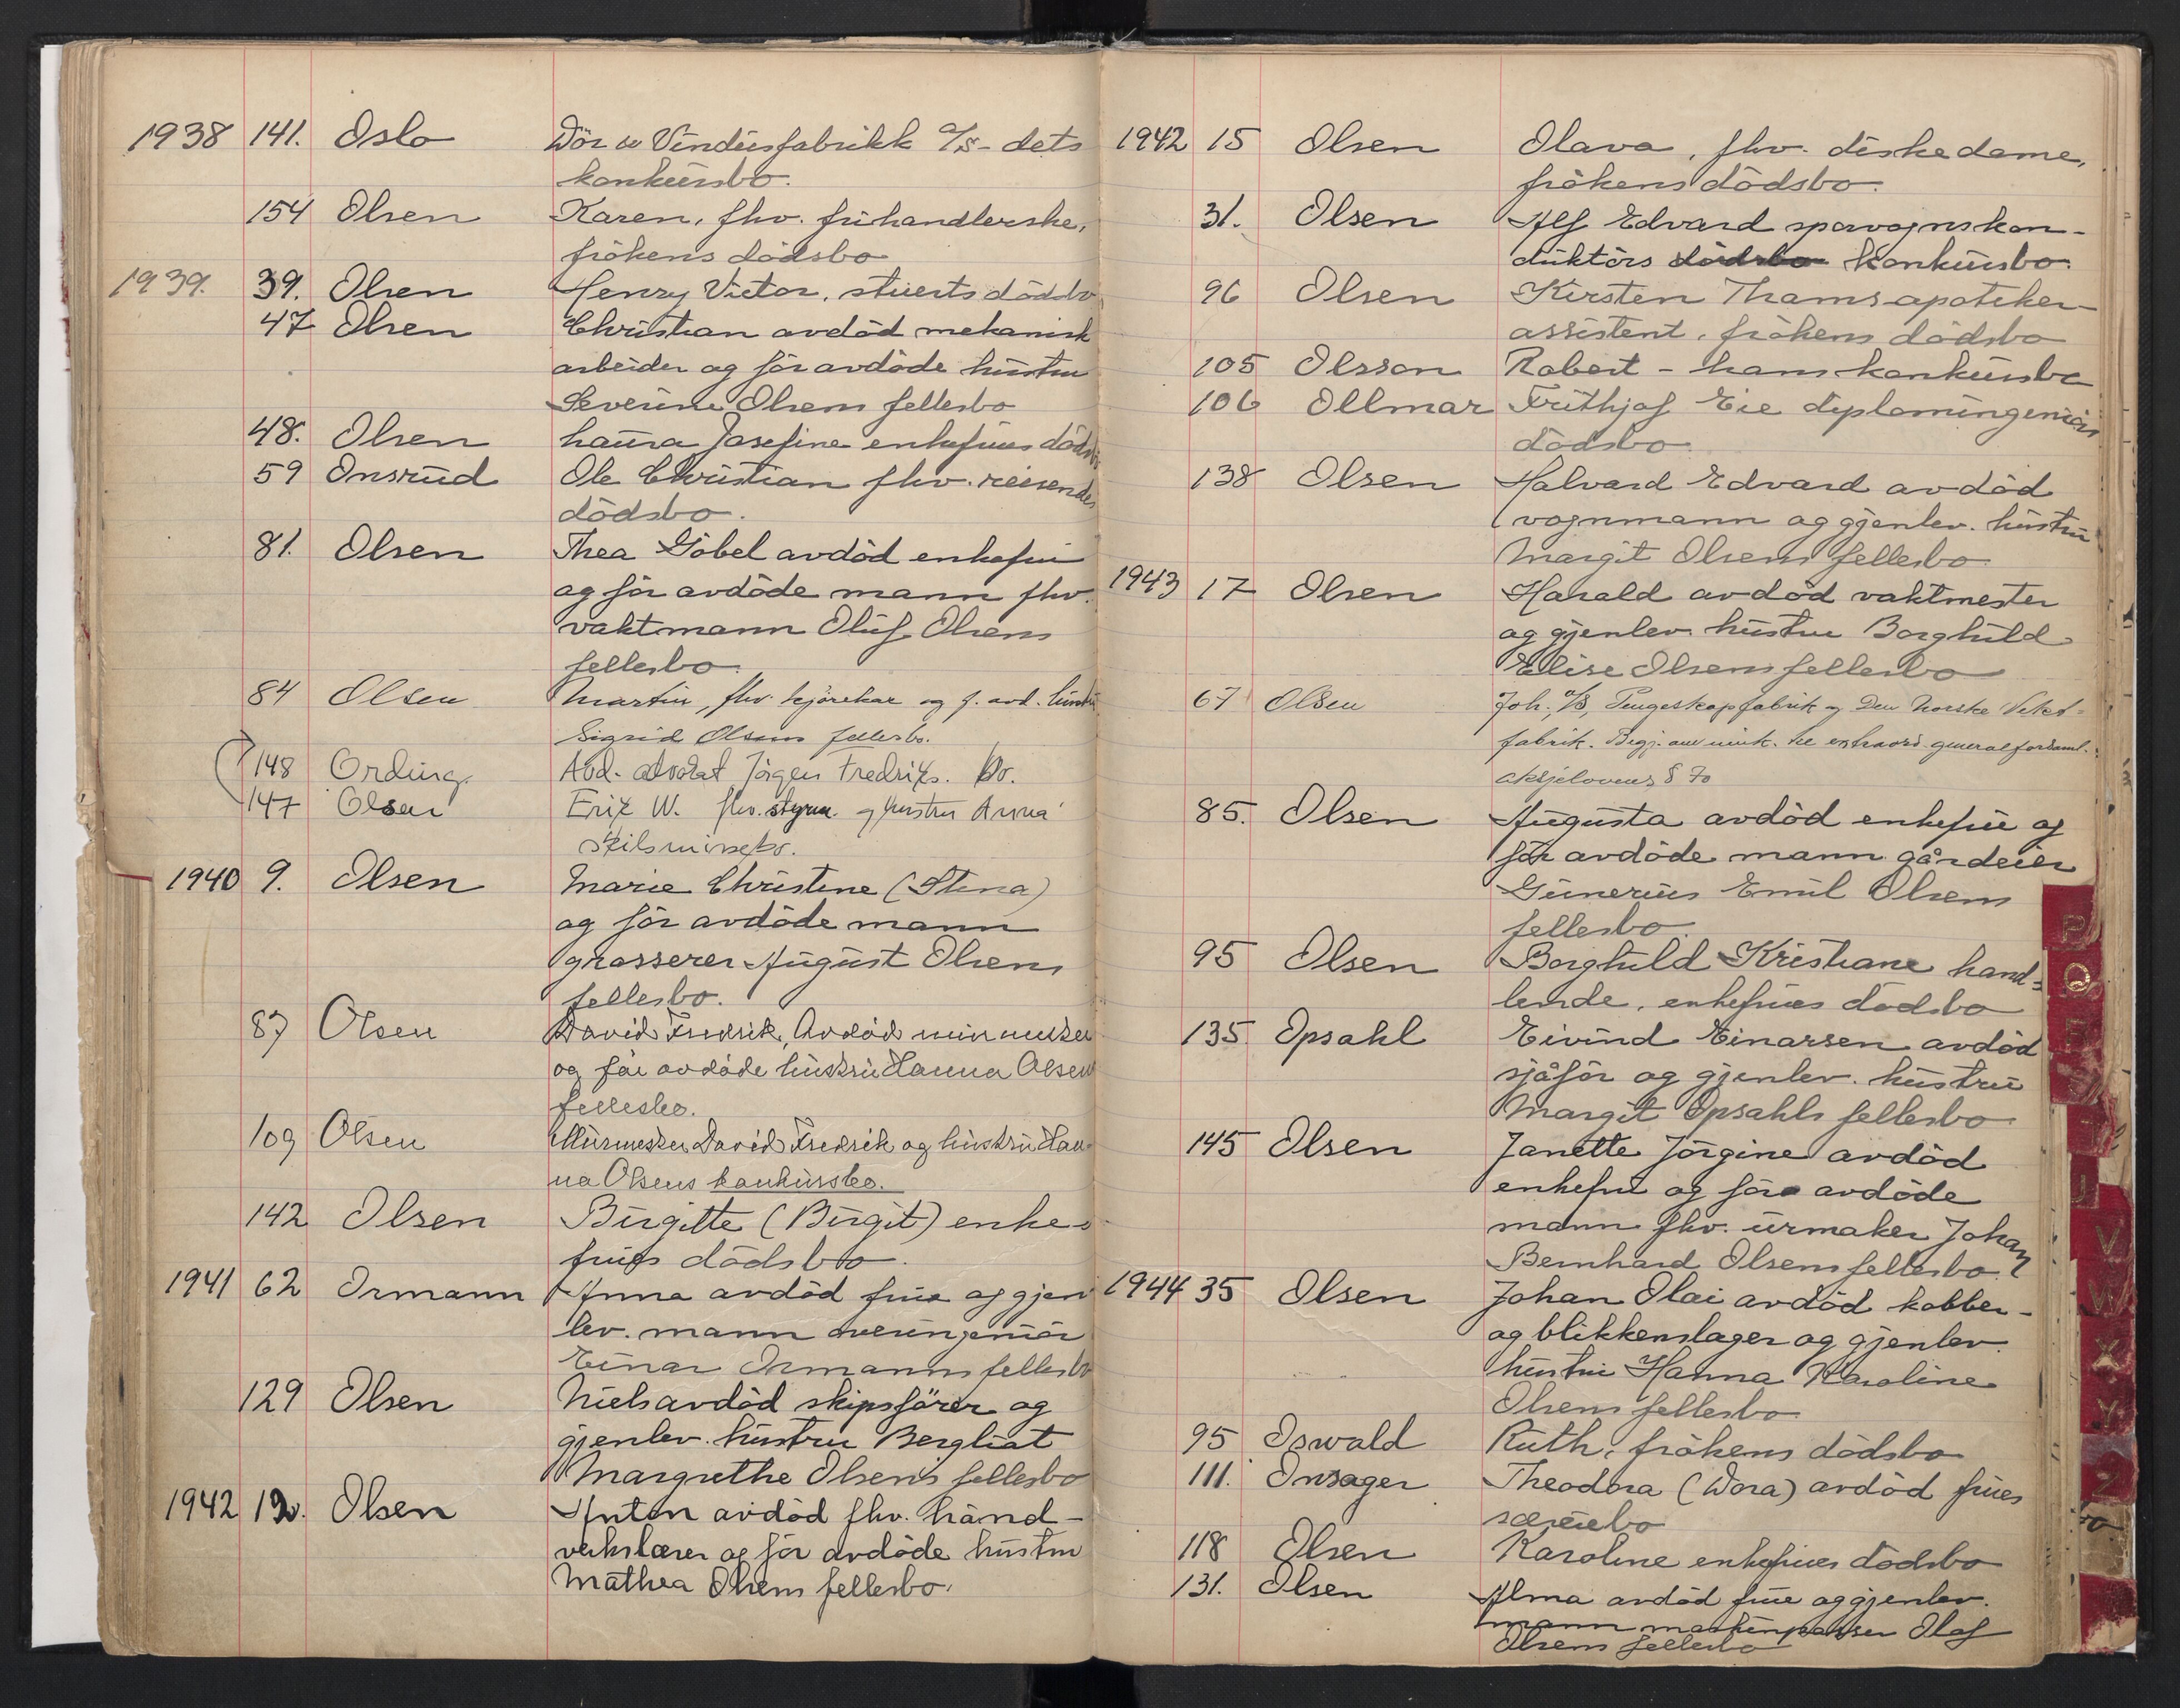 1938 141. Oslo Dör & Vindusfabrikk A/S - dets
konkursbo.
154 Olsen Karen, fhv. fruhandlerske,
frökens dödsbo
1939. 39. Olsen Henry Victor, stuerts dödsbo
47 Olsen Christian avdöd mekanisk
arbeider og för avdöde hustru
Severine Olsens fellesbo
48. Olsen Laura Josefine enkefrues dödsbo
59 Onsrud Ole Christian fhv. reisendes
dödsbo.
81. Olsen Thea Göbel avdöd enkefru
og för avdöde mann fhv.
vaktmann Oluf Olsens
fellesbo.
84 Olsen Martin, fhv. kjörekar og f. avd. hustru
Sigrid Olsens fellesbo.
148 Ording. Avd. advokat Jörgen Fredriks. bo.
147 Olsen Erik W. fhv. styrm. og hustru Anna
skilsmissebo.
1940 9. Olsen Marie Christine (Stina)
og för avdöde mann
grosserer August Olsens
fellesbo.
87 Olsen David Fredrik, Avdöd murmester
og för avdöde hustru Hanna Olsens
fellesbo.
109 Olsen Murmester David Fredrik og hustru Han-
na Olsens konkursbo.
142 Olsen Birgitte (Birgit) enke-
frues dödsbo.
1941 62 Ormann Anna avdöd frue og gjen
lev. mann overingeniör
Einar Ormanns fellesbo
129 Olsen Niels avdöd skipsförer og
gjenlev. hustru Bergliot
Margrethe Olsen's fellesbo
1942 12. Olsen Anton avdöd fhv. hånd-
verkslærer og för avdöde hustru
Mathea Olsens fellesbo.
1942 15 Olsen Olava, fhv. diskedame,
frökens dödsbo.
31. Olsen Alf Edvard sporvognskon-
duktörs dödsbo konkursbo.
96 Olsen Kirsten Thams apoteker-
assistent, frökens dödsbo
105 Olsson Robert - hans konkursbo
106 Ollmar Frithjof Eie diplomingeniörs
dödsbo.
138 Olsen Halvard Edvard avdöd
vognmann og gjenlev. hustru
Margit Olsens fellesbo.
1943 17 Olsen Harald avdöd vaktmester
og gjenlev. hustru Borghild
Elise Olsens fellesbo
67 Olsen Joh., A/S, Pengeskapfabrik og Den Norske Vekt-
fabrik. Begj. om innk. til extraord. generalforsaml.
aksjelovens § 70
85. Olsen Augusta avdöd enkefrue og
för avdöde mann gårdeier
Gunerius Emil Olsens
fellesbo.
95 Olsen Borghild Kristiane hand-
lende, enkefrues dödsbo
135 Opsahl Eivind Einarsen avdöd
sjåför og gjenlev. hustru
Margit Opsahls fellesbo
145 Olsen Janette Jörgine avdöd
enkefru og för avdöde
mann fhv. urmaker Johan
Bernhard Olsens fellesbo.
1944 35 Olsen Johan Olai avdöd kobber-
og blikkenslager og gjenlev.
hustru Hanna Karoline
Olsens fellesbo
95 Oswald Ruth, frökens dödsbo
111. Onsager Theodora (Dora) avdöd frues
særeiebo
118 Olsen Karoline enkefrues dödsbo
131. Olsen Alma avdöd frue og gjenlev.
mann maskinpasser Olaf
Olsens fellesbo
P
Q
V
W
X
Y